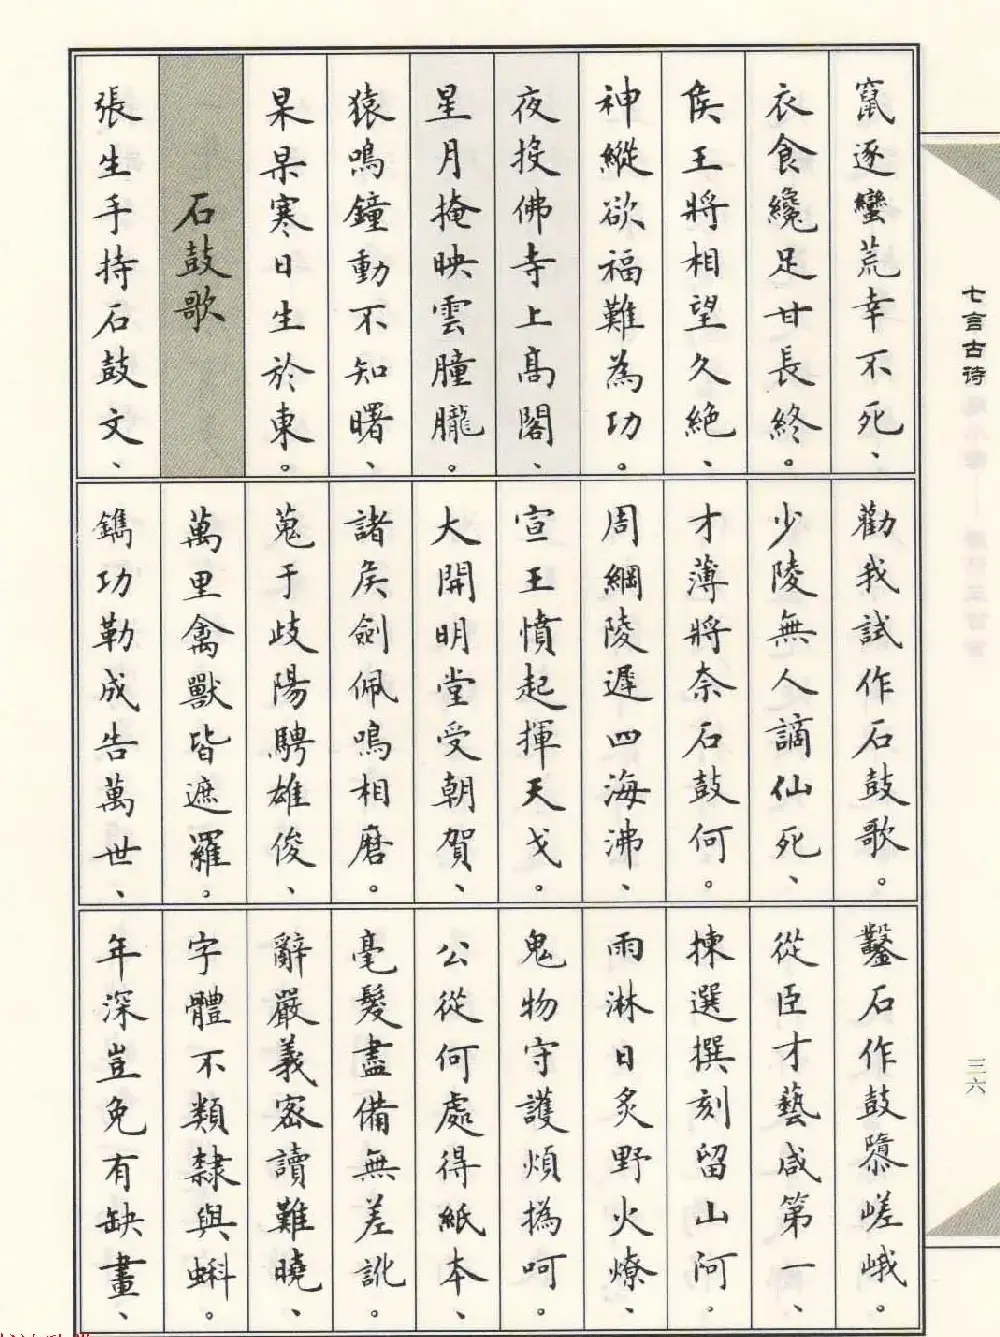 竄逐蠻荒幸不死、
衣食纔足甘長終。
侯王將相望久絶、
神縱欲福難為功。
夜投佛寺上高閣、
星月掩映雲朣朧。
猿鳴鐘動不知曙、
杲杲寒日生於東。
石鼓歌
張生手持石鼓文、
勸我試作石鼓歌。
少陵無人謫仙死、
才薄將奈石鼓何。
周綱陵遲四海沸、
宣王憤起揮天戈。
大開明堂受朝賀、
諸侯劍佩鳴相磨。
蒐于歧陽騁雄俊、
萬里禽獸皆遮羅。
鐫功勒成告萬世、
鑿石作鼓隳嵯峨。
從臣才藝咸第一、
揀選撰刻留山阿。
雨淋日炙野火燎、
鬼物守護煩撝呵。
公從何處得紙本、
毫髮盡備無差訛。
辭嚴義密讀難曉、
字體不類隸與蝌。
年深豈免有缺畫、
七言古诗
三六